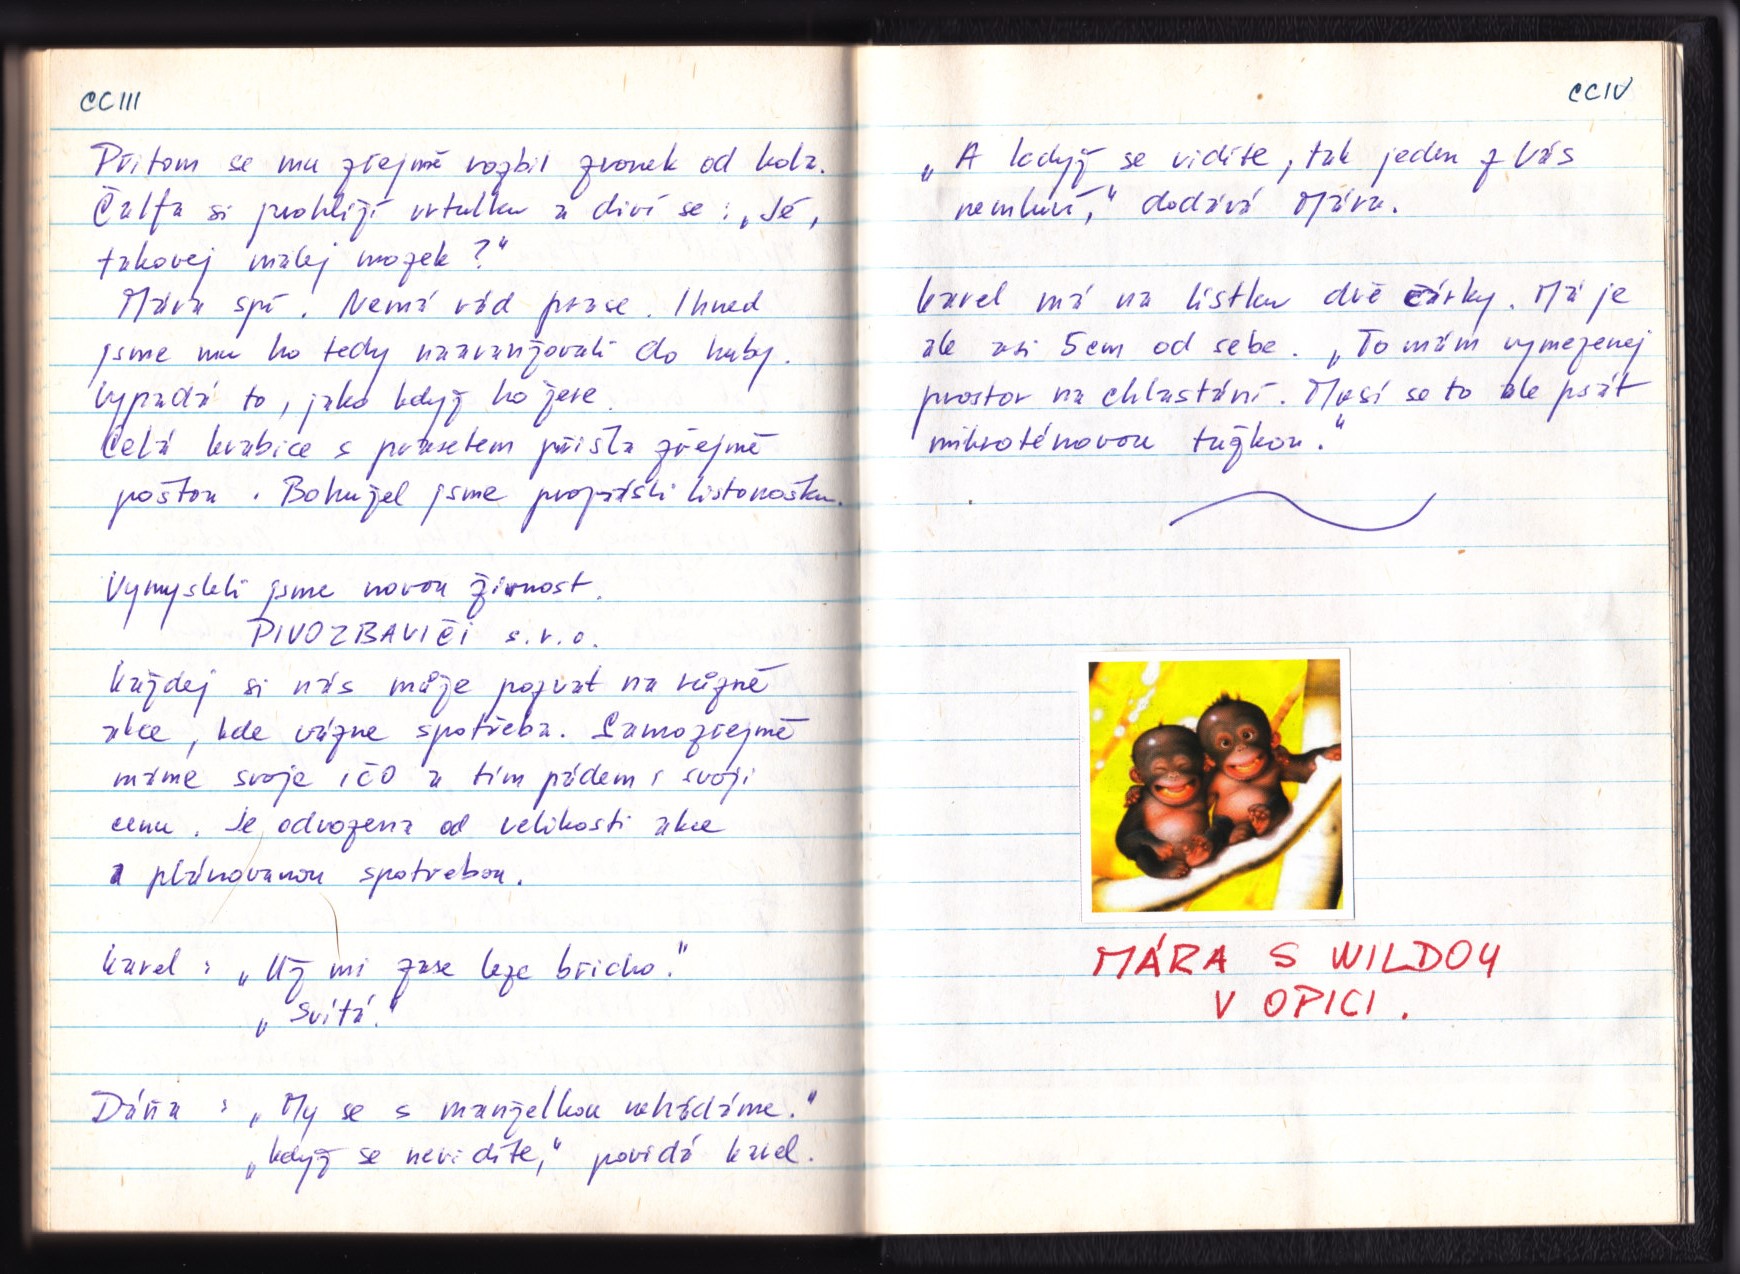 CCIII
Přitom se mu zřejmě rozbil zvonek od kola.
Čalfa si prohlíží vrtulku a diví se: „Jé,
takovej malej mozek?“
Mára spí. Nemá rád prase. Ihned
jsme mu ho tedy naaranžovali do huby.
Vypadá to, jako když ho žere.
Celá krabice s prasetem přišla zřejmě
poštou. Bohužel jsme propásli listonošku.
Vymysleli jsme novou živnost.
PIVOZBAVIČI s.r.o.
Každej si nás může pozvat na různé
akce, kde vázne spotřeba. Samozřejmě
máme svoje IČO a tím pádem i svoji
cenu. Je odvozena od velikosti akce
a plánovanou spotřebou.
Karel: „Už mi zase leze břicho.“
„Svítá.“
Dáňa: „My se s manželkou nehádáme.“
„Když se nevidíte,“ povídá Karel.
CCIV
„A když se vidíte, tak jeden z Vás
nemluví,“ dodává Mára.
Karel má na lístku dvě čárky. Má je
ale asi 5cm od sebe. „To mám vymezenej
prostor na chlastání. Musí se to ale psát
mikroténovou tužkou.“
MÁRA S WILDOU
V OPICI.